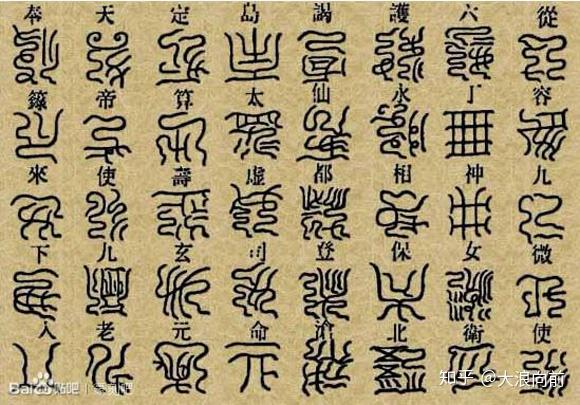 從容九微使
六丁神女衛
護永相保北
謁仙都登滄
島太虛司命
定算壽玄元
天帝使九老
奉籙來下人
知乎 @大浪向前
Bai 贴吧